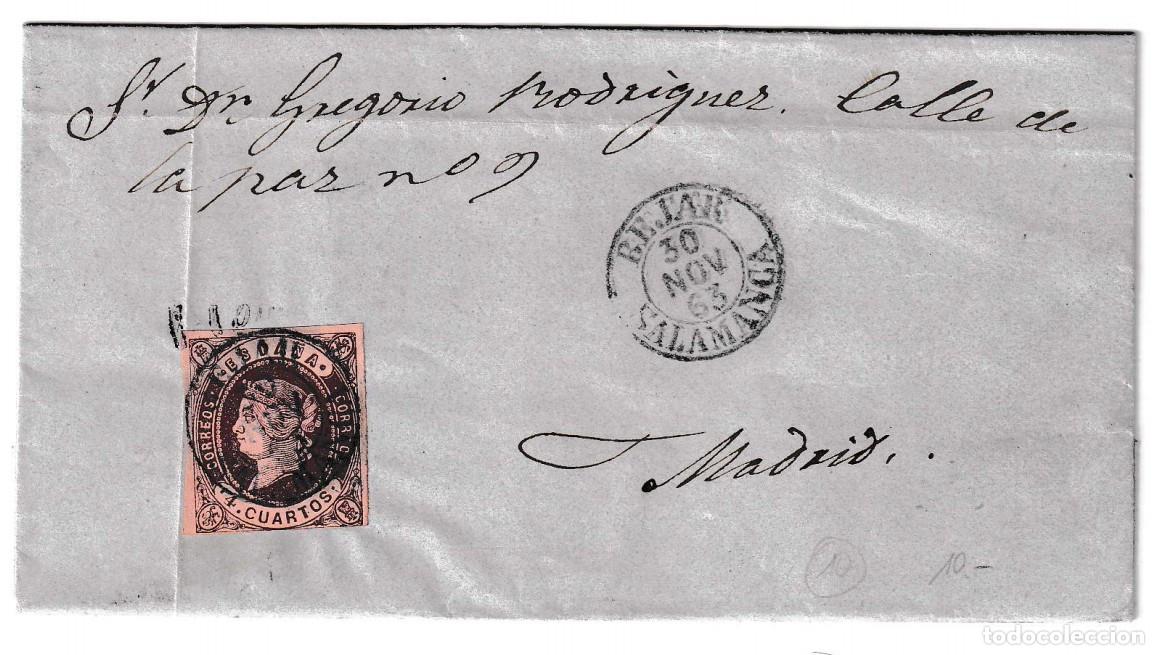 Sr. Dn Gregorio Rodriguez. Calle de
la paz nº 9
BEJAR
30
NOV
63
SALAMANCA
ESPAÑA
CORREOS
CORREOS
4. CUARTOS.
Madrid..
10
10.-
todocoleccion